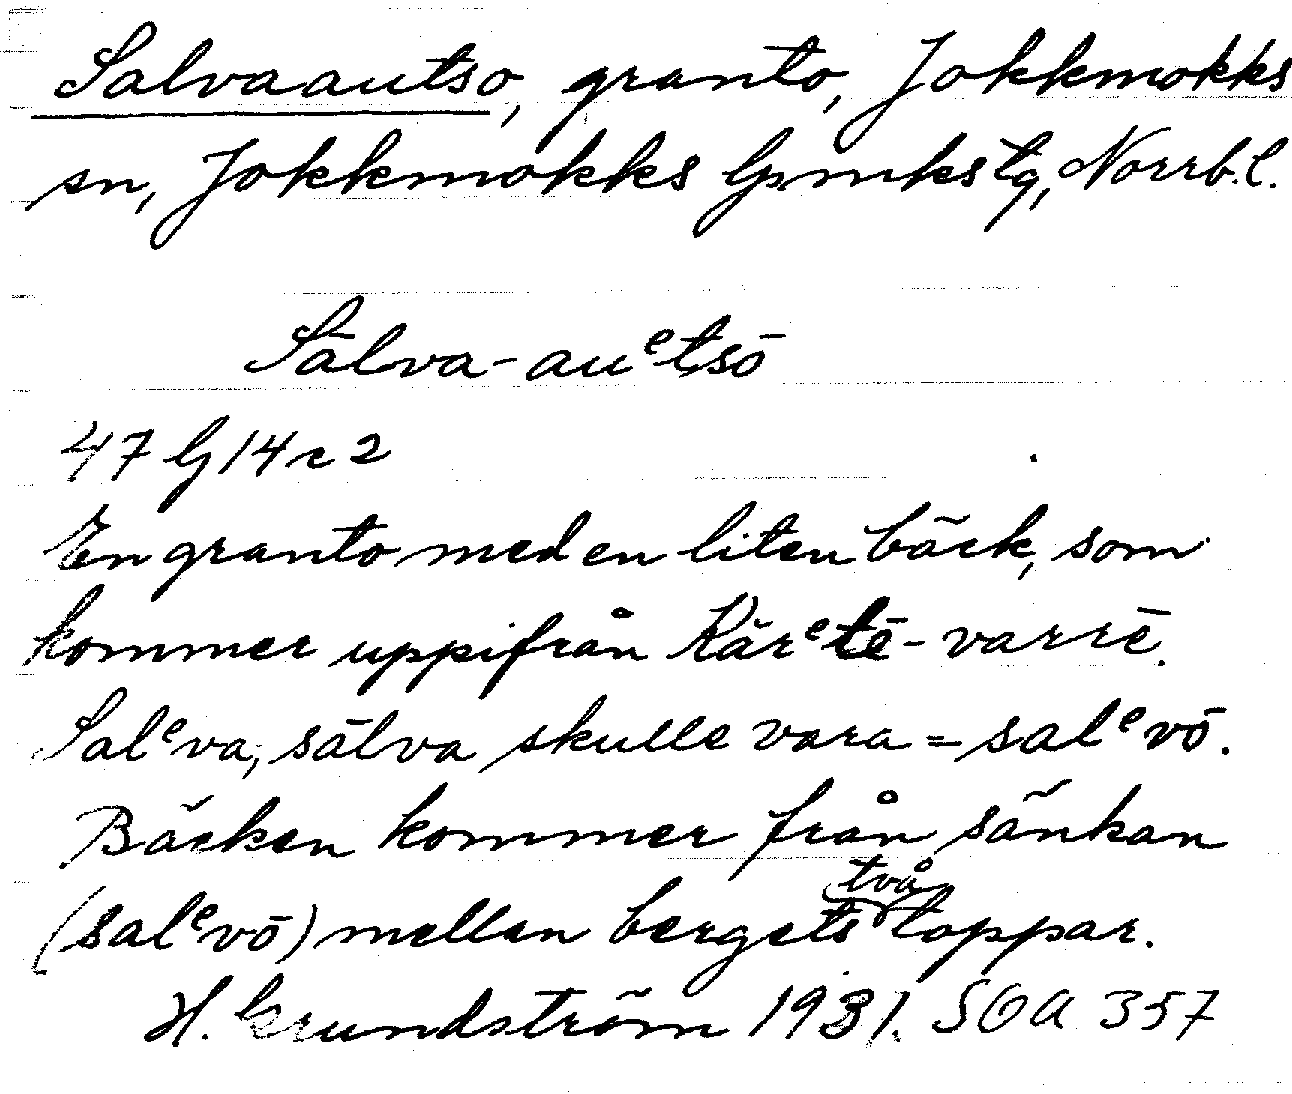 Salvaautso, granto, Jokkmokks
sn, Jokkmokks lpmks tg, Norrb. l.
Sālva-auᵉtsō
47 G 14 c 2
En granto med en liten bäck, som
kommer uppifrån Kārᵉtē-varrē.
Salᵉva, sālva skulle vara = salᵉvō.
Bäcken kommer från sänkan
(salᵉvō) mellan bergets två toppar.
H. Grundström 1931. SOA 357